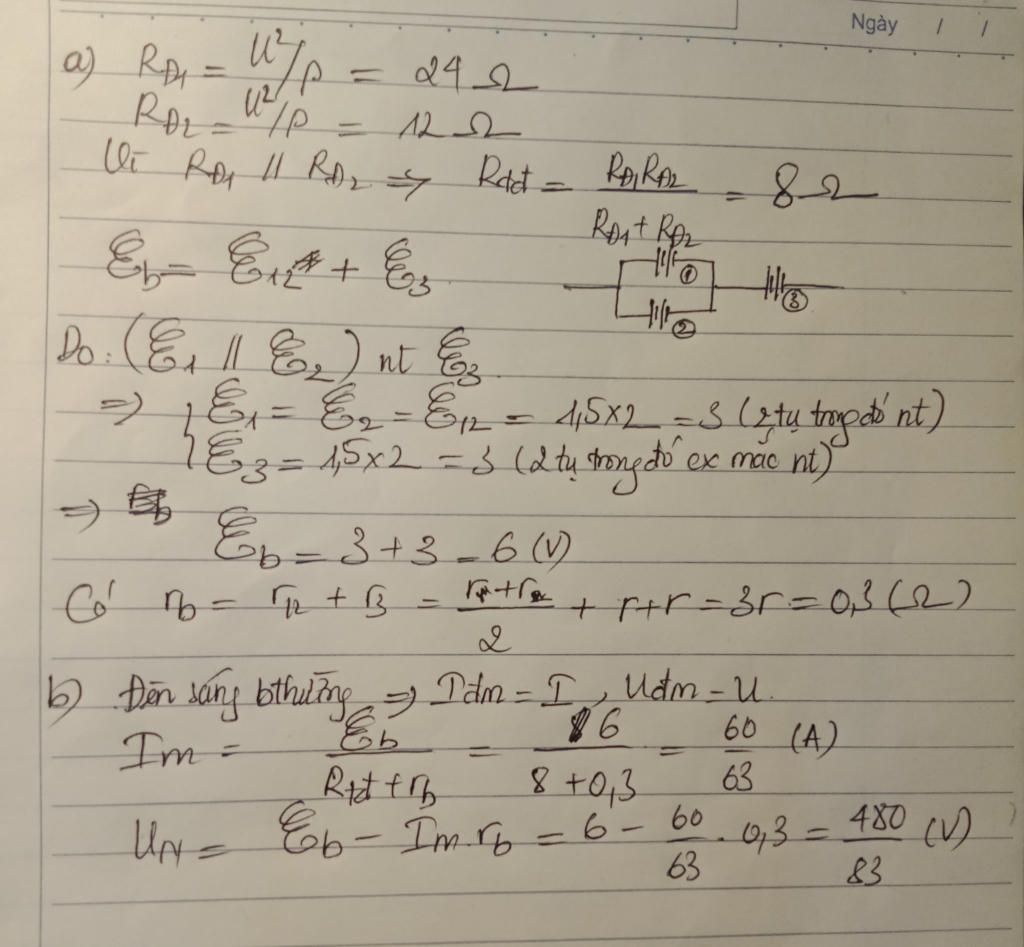 Ngày / /
a) RĐ1 = U²/P = 24 Ω
RĐ2 = U²/P = 12 Ω
Vì RĐ1 // RĐ2 => Rtđ = RĐ1RĐ2 / RĐ1 + RĐ2 = 8 Ω
ℰb = ℰ12 + ℰ3
① ② ③
Do: (ℰ1 // ℰ2) nt ℰ3
=> { ℰ1 = ℰ2 = ℰ12 = 1,5x2 = 3 (2 tụ trong đó nt)
ℰ3 = 1,5x2 = 3 (2 tụ trong đó ex mắc nt)
=>
ℰb = 3 + 3 = 6 (V)
Có rb = r12 + r3 = r+r / 2 + r+r = 3r = 0,3 (Ω)
b) Đèn sáng bthường => Iđm = I, Uđm = U.
Im = ℰb / Rtđ + rb = 6 / 8 + 0,3 = 60 / 63 (A)
UN = ℰb - Im.rb = 6 - 60 / 63 . 0,3 = 480 / 83 (V)